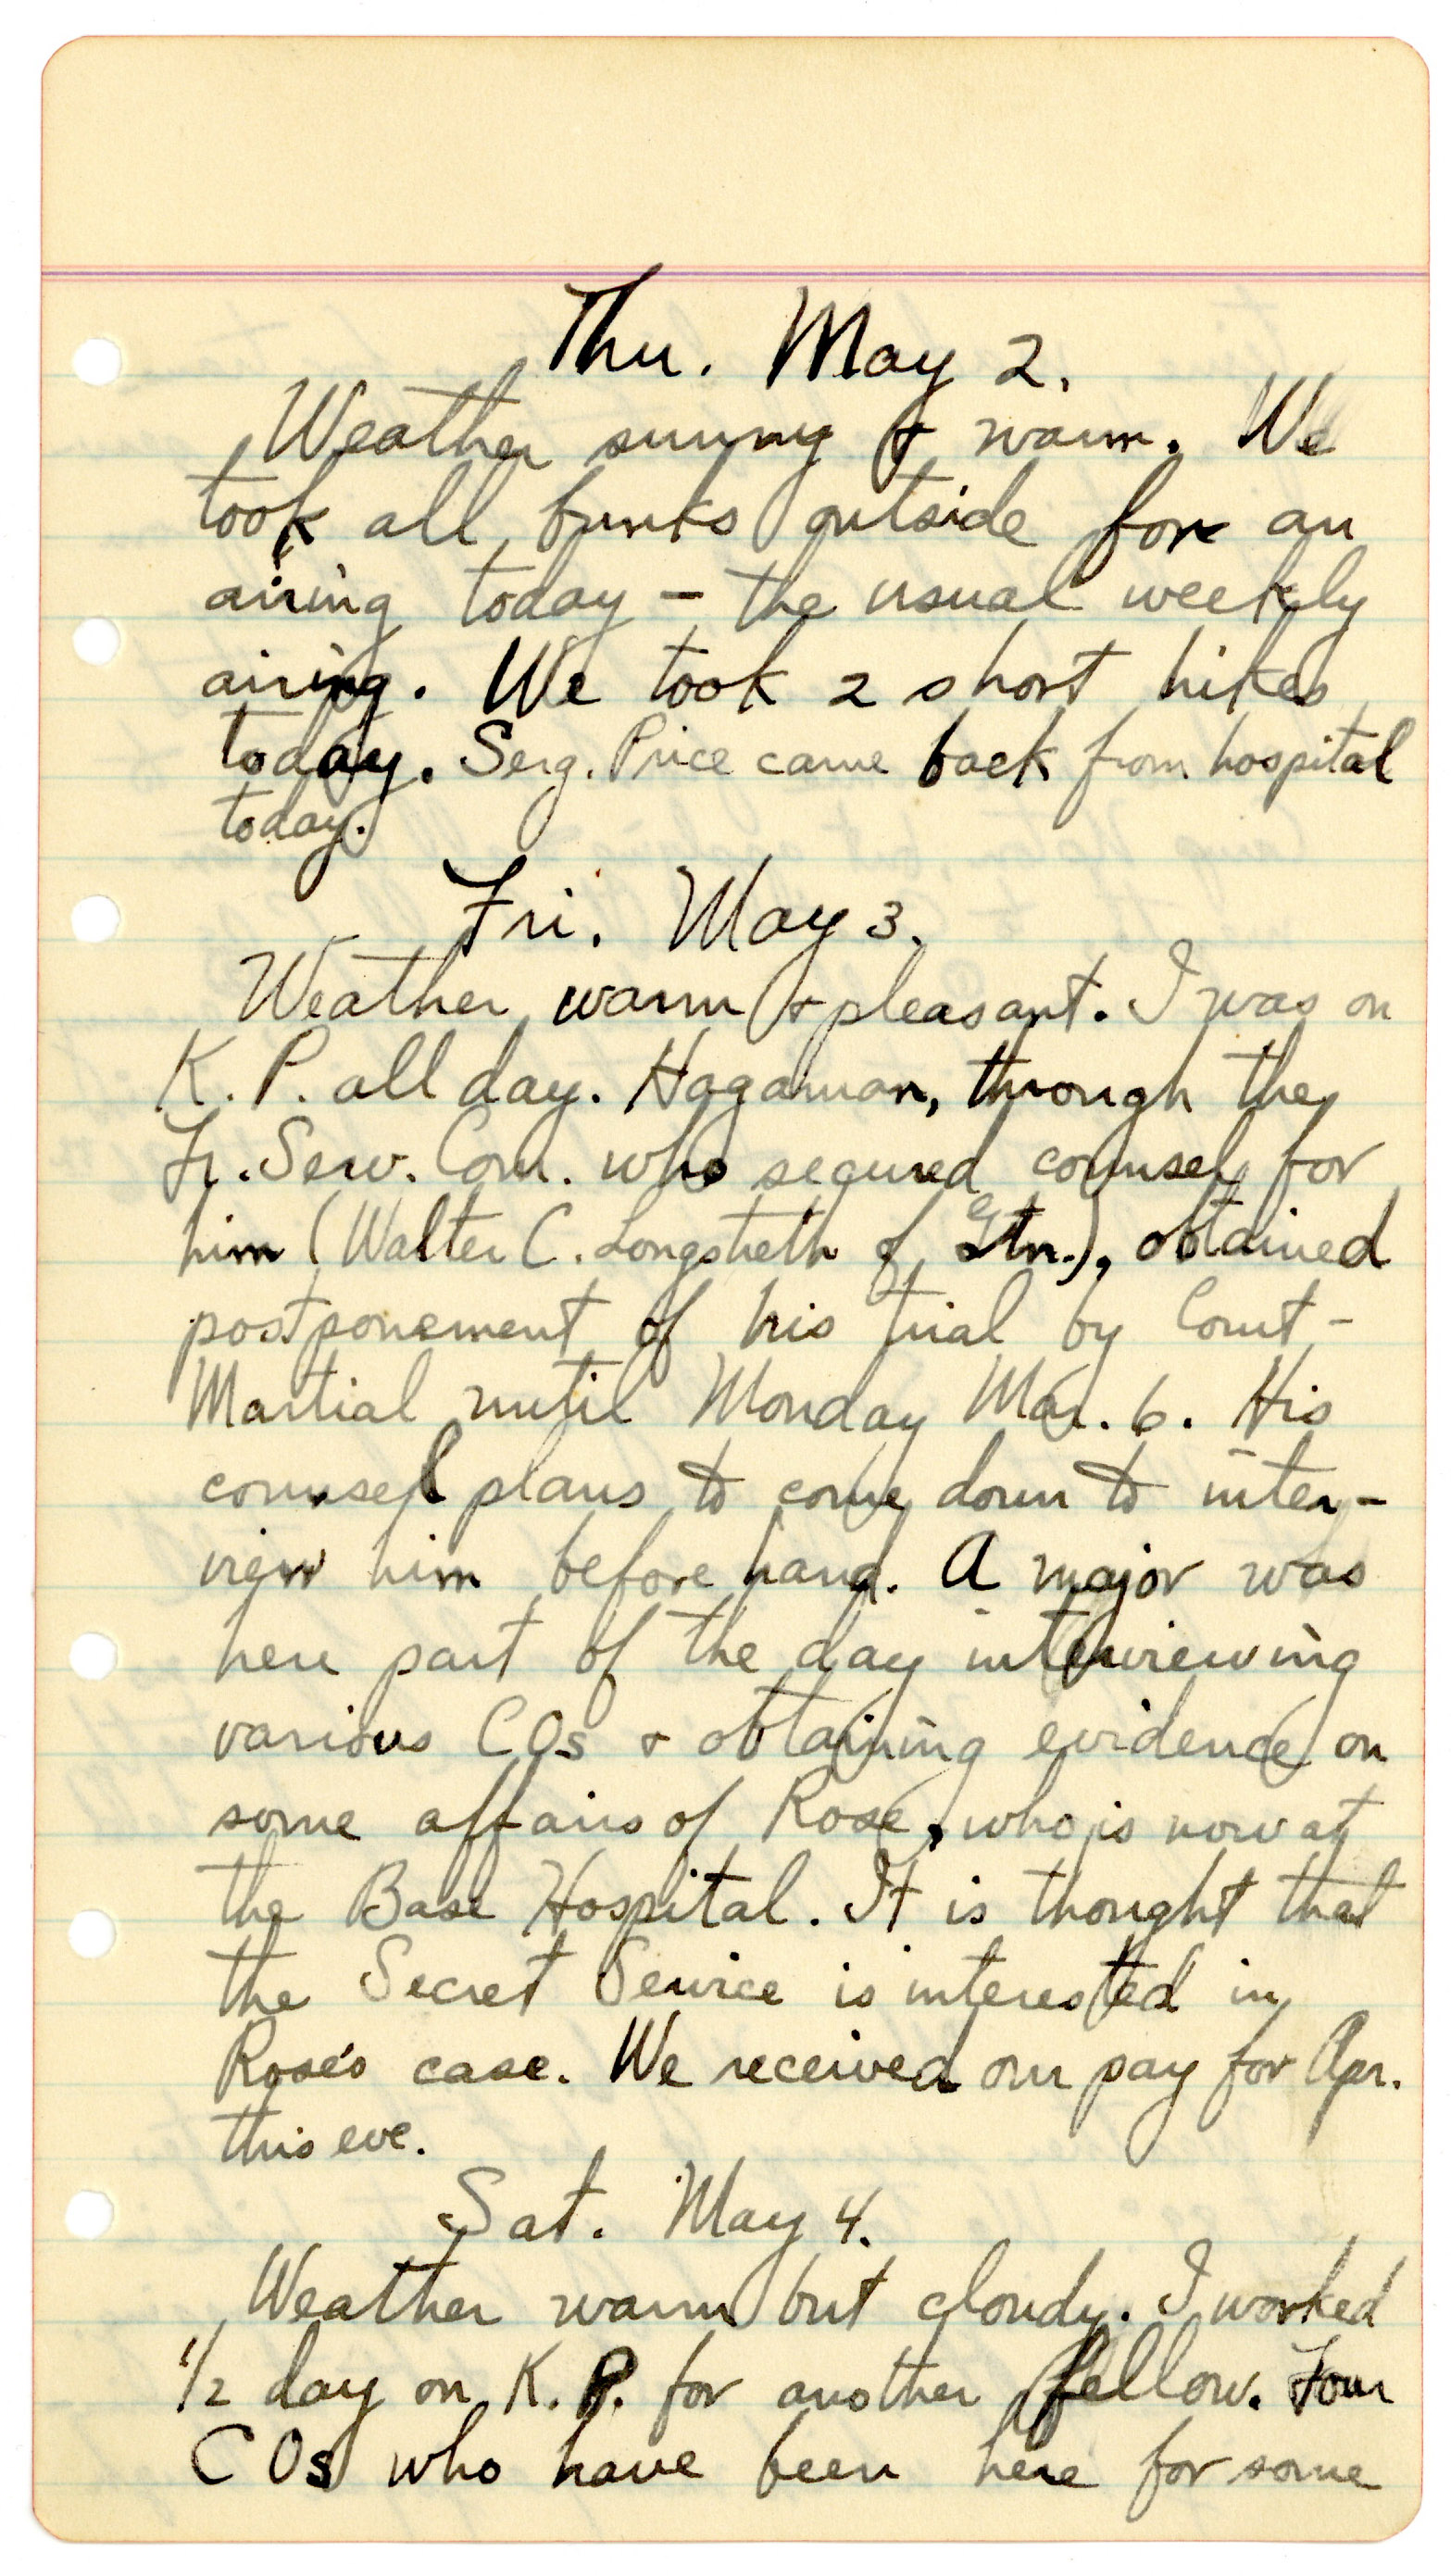 Thu. May 2.
Weather sunny & warm. We
took all bunks outside for an
airing today - the usual weekly
airing. We took 2 short hikes
today. Serg. Price came back from hospital
today.
Fri. May 3.
Weather warm & pleasant. I was on
K.P. all day. Hagaman, through the
Fr. Serv. Com. who secured counsel for
him (Walter C. Longstreth of Gtn.), obtained
postponement of his trial by Court-
Martial until Monday Mar. 6. His
counsel plans to come down to inter-
view him before hand. A major was
here part of the day interviewing
various COs & obtaining evidence on
some affairs of Rose, who is now at
the Base Hospital. It is thought that
the Secret Service is interested in
Rose's case. We received our pay for Apr.
this eve.
Sat. May 4.
Weather warm but cloudy. I worked
1/2 day on K.P. for another fellow. Four
COs who have been here for some